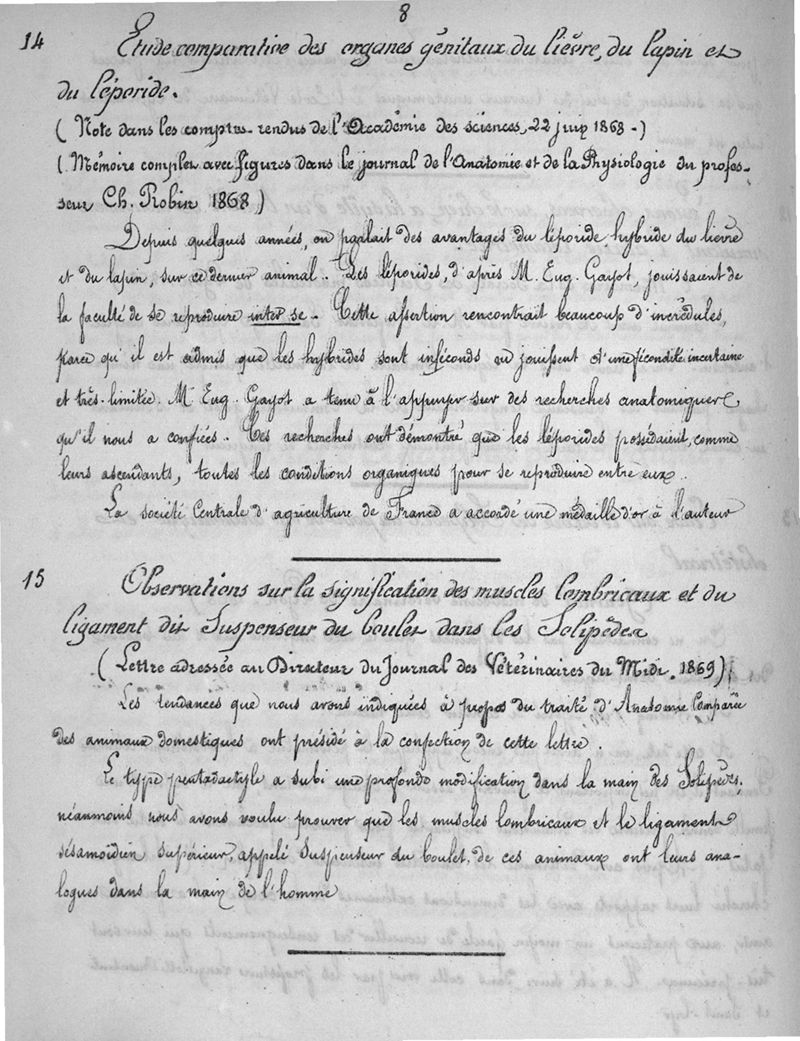 8
14 Etude comparative des organes génitaux du lièvre, du lapin et
du léporide.
( Note dans les comptes-rendus de l'Académie des sciences, 22 juin 1868 -)
( Mémoire complet avec figures dans le journal de l'Anatomie et de la Physiologie du profes-
seur Ch. Robin 1868 )
Depuis quelques années, on parlait des avantages du léporide, hybride du lièvre
et du lapin, sur ce dernier animal. Les léporides, d'après M. Eug. Gayot, jouissaient de
la faculté de se reproduire inter se. Cette assertion rencontrait beaucoup d'incrédules,
parce qu'il est admis que les hybrides sont inféconds ou jouissent d'une fécondité incertaine
et très-limitée. Mr Eug. Gayot a tenu à l'appuyer sur des recherches anatomiques
qu'il nous a confiées. Ces recherches ont démontré que les léporides possédaient, comme
leurs ascendants, toutes les conditions organiques pour se reproduire entre eux.
La société Centrale d'agriculture de France a accordé une médaille d'or à l'auteur
15 Observations sur la signification des muscles lombricaux et du
ligament dit Suspenseur du boulet dans les Solipèdes
( Lettre adressée au Directeur du Journal des Vétérinaires du Midi, 1869 );
Les tendances que nous avons indiquées à propos du traité d'Anatomie Comparée
des animaux domestiques ont présidé à la confection de cette lettre.
Le type pentadactyle a subi une profonde modification dans la main des Solipèdes,
néanmoins nous avons voulu prouver que les muscles lombricaux et le ligament
sésamoïdien supérieur, appelé Suspenseur du boulet, de ces animaux ont leurs ana-
logues dans la main de l'homme